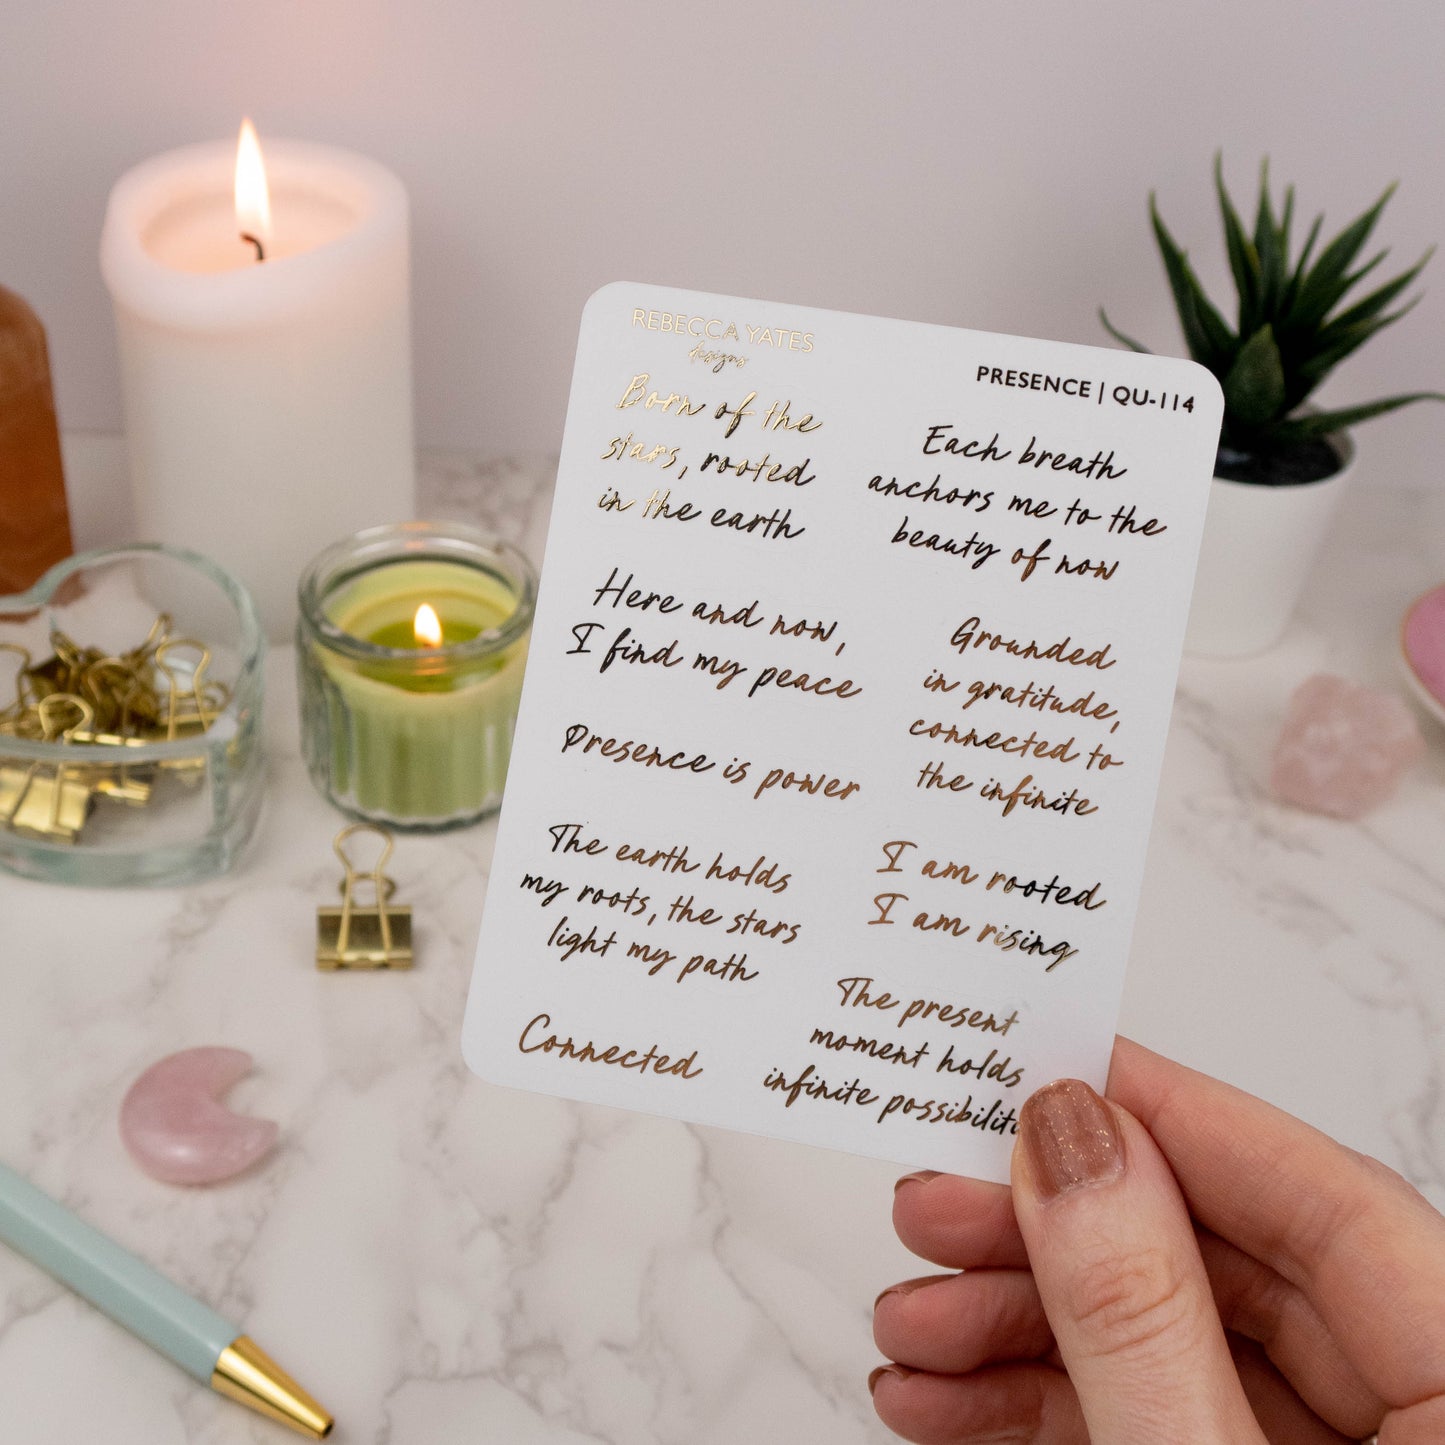 REBECCA YATES
designs
PRESENCE | QU-114
Born of the
stars, rooted
in the earth
Here and now,
I find my peace
Presence is power
The earth holds
my roots, the stars
light my path
Connected
Each breath
anchors me to the
beauty of now
Grounded
in gratitude,
connected to
the infinite
I am rooted
I am rising
The present
moment holds
infinite